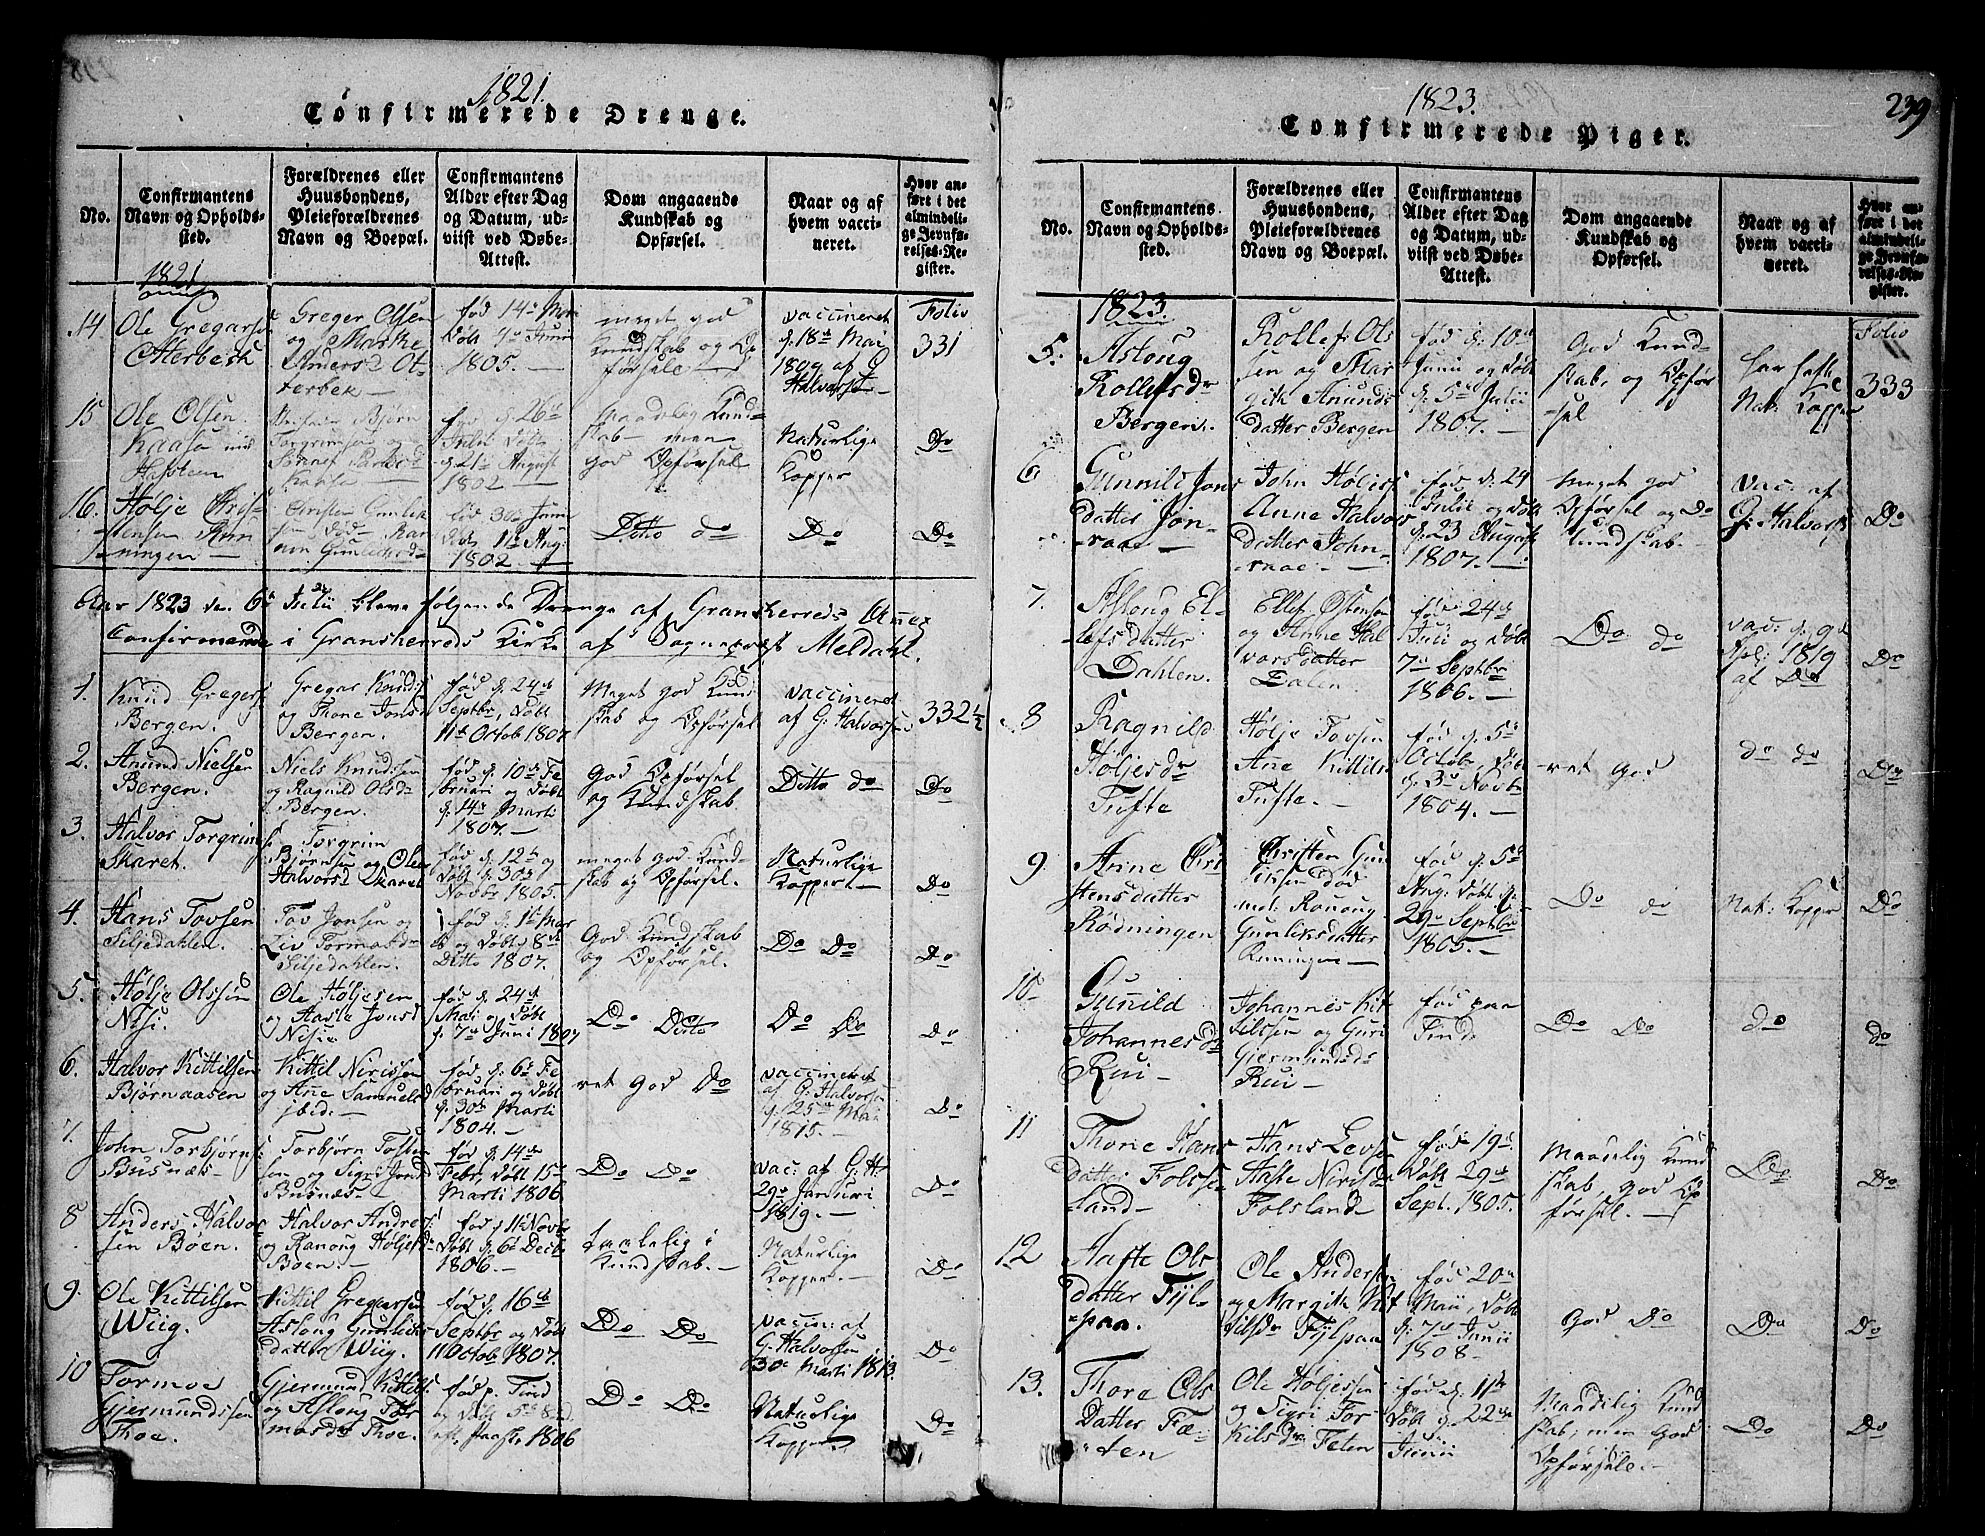 1821.
Confirmerede Drenge.
No.
Confirmantens
Navn og Opholds-
sted.
Forældrenes eller
Huusbondens,
Pleieforældrenes
Navn og Boepæl.
Confirmantens
Alder efter Dag
og Datum, ud-
viist ved Døbe-
Attest.
Dom angaaende
Kundskab og
Opførsel.
Naar og af
hvem vacci-
neret.
Hvor an-
ført i det
almindeli-
ge Jevnfø-
relses-Re-
gister.
1821
14.
Ole Gregars
Otterbech
Greger Olsen
og Marthe
Anders Ot-
terbek
fød 14de Mai
Døbt 4de Junii
1805.
meget god
Kundskab og Op
førsel
vaccineret
d. 18de Mai
1809 af G
Halvorsen
Folio
331
15
Ole Olsen
Kaasa
Bjørn
Torgrimsen og
fød d. 26de
Julii Døbt
d. 21de August
1802
Maadelig Kund-
skab men
god Opførsel
Naturlige
Kopper
Do
16.
Hølje Chris-
tensen Run
ningen
Christen Gunlek
sen død
Gunleiksd
fød 30de Junii
Døbt 1te Aug:
1802.
Ditto do
Do
Do
Aar 1823 den 6te Julii bleve følgende Drenge af Gransherreds Annex
Confirmerede i Gransherreds Kirke af Sognepræst Meldahl.
1.
Knud Gregers
Bergen.
Gregar Knuds
og Thone Jonsd
Bergen.
fød d. 24de
Septbr, Døbt
11te Octob 1807
Meget god Kund
skab og Opførsel
vaccineret
af G: Halvorsen
332½
2.
Anund Nielsen
Bergen.
Niels Knudsen
og Ragnild Olsd
Bergen
fød d. 10de Fe
bruari og Døbt
d. 14de Marti
1807.
god Opførsel
og Kundskab
Ditto do
Do
3.
Halvor Torgrims
Skaret.
Torgrim
Bjørnsen og Olea
Halvorsd Skaret
fød d. 12te og
Døbt d. 30de
Novbr 1805.
meget god Kund
skab og Opførsel.
Naturlige
Kopper
Do
4.
Hans Tovsen
Siljedahlen.
Tov Jonsen og
Liv Tormodsdr
Siljedahlen.
fød d. 1te Mar
ts og Døbt 8de
Ditto 1807.
God Kundskab
og Opførsel.
Do Do
Do
5.
Hølje Olssen
Nisi.
Ole Høljesen
og Aaste Jonsd
Nisie
fød d. 24de
Mai og Døbt
d. 7de Juni 1807
Do Ditto
Do Do
Do
6.
Halvor Kittilsen
Bjørnaasen
Kittil Nirissen
og Ane Samuelsd
ibid.
fød d. 6te Fe
bruari og Døbt
d. 30de Marti
1804.
ret god Do
vaccineret
af G. Halvorsen
d. 25de Mai
1815.
Do
7.
John Torbjørns
Busnæs
Torbjørn Tosten
sen og Sigri Jonsd
Busnæs
fød d. 14de
Febr, Døbt 15de
Marti 1806
Do Do
vac: af G. H
29de Januari
1819.
Do
8
Anders Halvor
sen Bøen.
Halvor Anders
og Ranoug Høljesd
Boen
fød d. 11te Novbr
Døbt d. 6te Decbr
1806.
taalelig i
Kundskab.
Naturlige
Kopper.
Do
9.
Ole Kittilsen
Wiig.
Kittil Gregarsen
Aslong Gunleiks
datter Wiig.
fød d. 16de
Septbr og Døbt
11 Octobr 1807.
Do Do
vaccin: af
G. Halvorsen
30te Marti 1813
Do
10
Tormoe
Gjermundssen
Thoe.
Gjermund Kittils
og Aslong Tor
modsdr Thoe.
fød p. Tind
og Døbt 5te S.
eft. Paaske 1806
Do Do
Naturlige
Kopper
Do
1823.
239
Confirmerede Piger.
No.
Confirmantens
Navn og Opholds-
sted.
Forældrenes eller
Huusbondens,
Pleieforældrenes
Navn og Boepæl.
Confirmantens
Alder efter Dag
og Datum, ud-
viist ved Døbe-
Attest.
Dom angaaende
Kundskab og
Opførsel.
Naar og af
hvem vacci-
neret.
Hvor an-
ført i det
almindeli-
ge Jevnfø-
relses-Re-
gister.
1823.
5.
Aslong
Rollefsdr
Bergen.
Rollef Ols
sen og Mar
gith Anunds
datter Bergen
fød d. 10de
Junii og Døbt
d. 5te Julii
1807.
God Kund-
skab, og Opfør
sel
har hafte
Nat: Kopper
Folio
333
6
Gunnild Jons
datter Jon-
raae
John Høljes
Anne Halvors
datter John-
raae.
fød d. 29
Julii og Døbt
d. 23 August
1807.
Meget god
Opførsel og Do
Kundskab.
Vac: af
G. Halvors
Do
7.
Aslong El-
lefsdatter
Dahlen.
Ellef Østensen
og Anne Hal
vorsdatter
Dalen.
fød 24de
Juli og Døbt
7de Septbr
1806.
Do do
vac: d. 9de
1819
af Do
Do
8
Ragnild
Høljesdr
Tufte
Hølje Tovsen
Ane Kittils
Tufte.
fød d. 5te
Octobr, Døbt
d. 3de Novbr
1804.
ret god
do do
Do
9.
Anne Chri
stensdatter
Rødningen
Christen Gun
leiksen død
md: Ranoug
Gunleiksdatter
fød d. 5te
Aug: Døbt d.
29de Septbr
1805.
Do do
Nat: Kopper
Do
10
Gunild
Johannesd
Rui
Johannes Kit
tilsen og Guri
Gjermundsd
Rui
fød paa
Tind
Do Do
do
do
11
Thone Hans
datter Folse
land
Hans Levs
Aaste Nirisdr
Folsland
fød 19de
Døbt 29de
Sept. 1805.
Maadelig Kund
skab, god Op
førsel.
Do
Do
12
Aaste Ols
datter Fijl-
paa.
Ole Andersen
og Margith Kit
tilsdr Fijlpaa
fød 20de
Maii, Døbt
d. 7de Junii
1808
God Do
Do
Do
13.
Thore Ols
datter Fæ-
ten
Ole Høljessen
og Sigri Tor-
kilsdr Feten
fød d. 11te
Døbt d. 22de
Junii
Maadelig Kund
skab, men God
Opførsel.
Do
Do